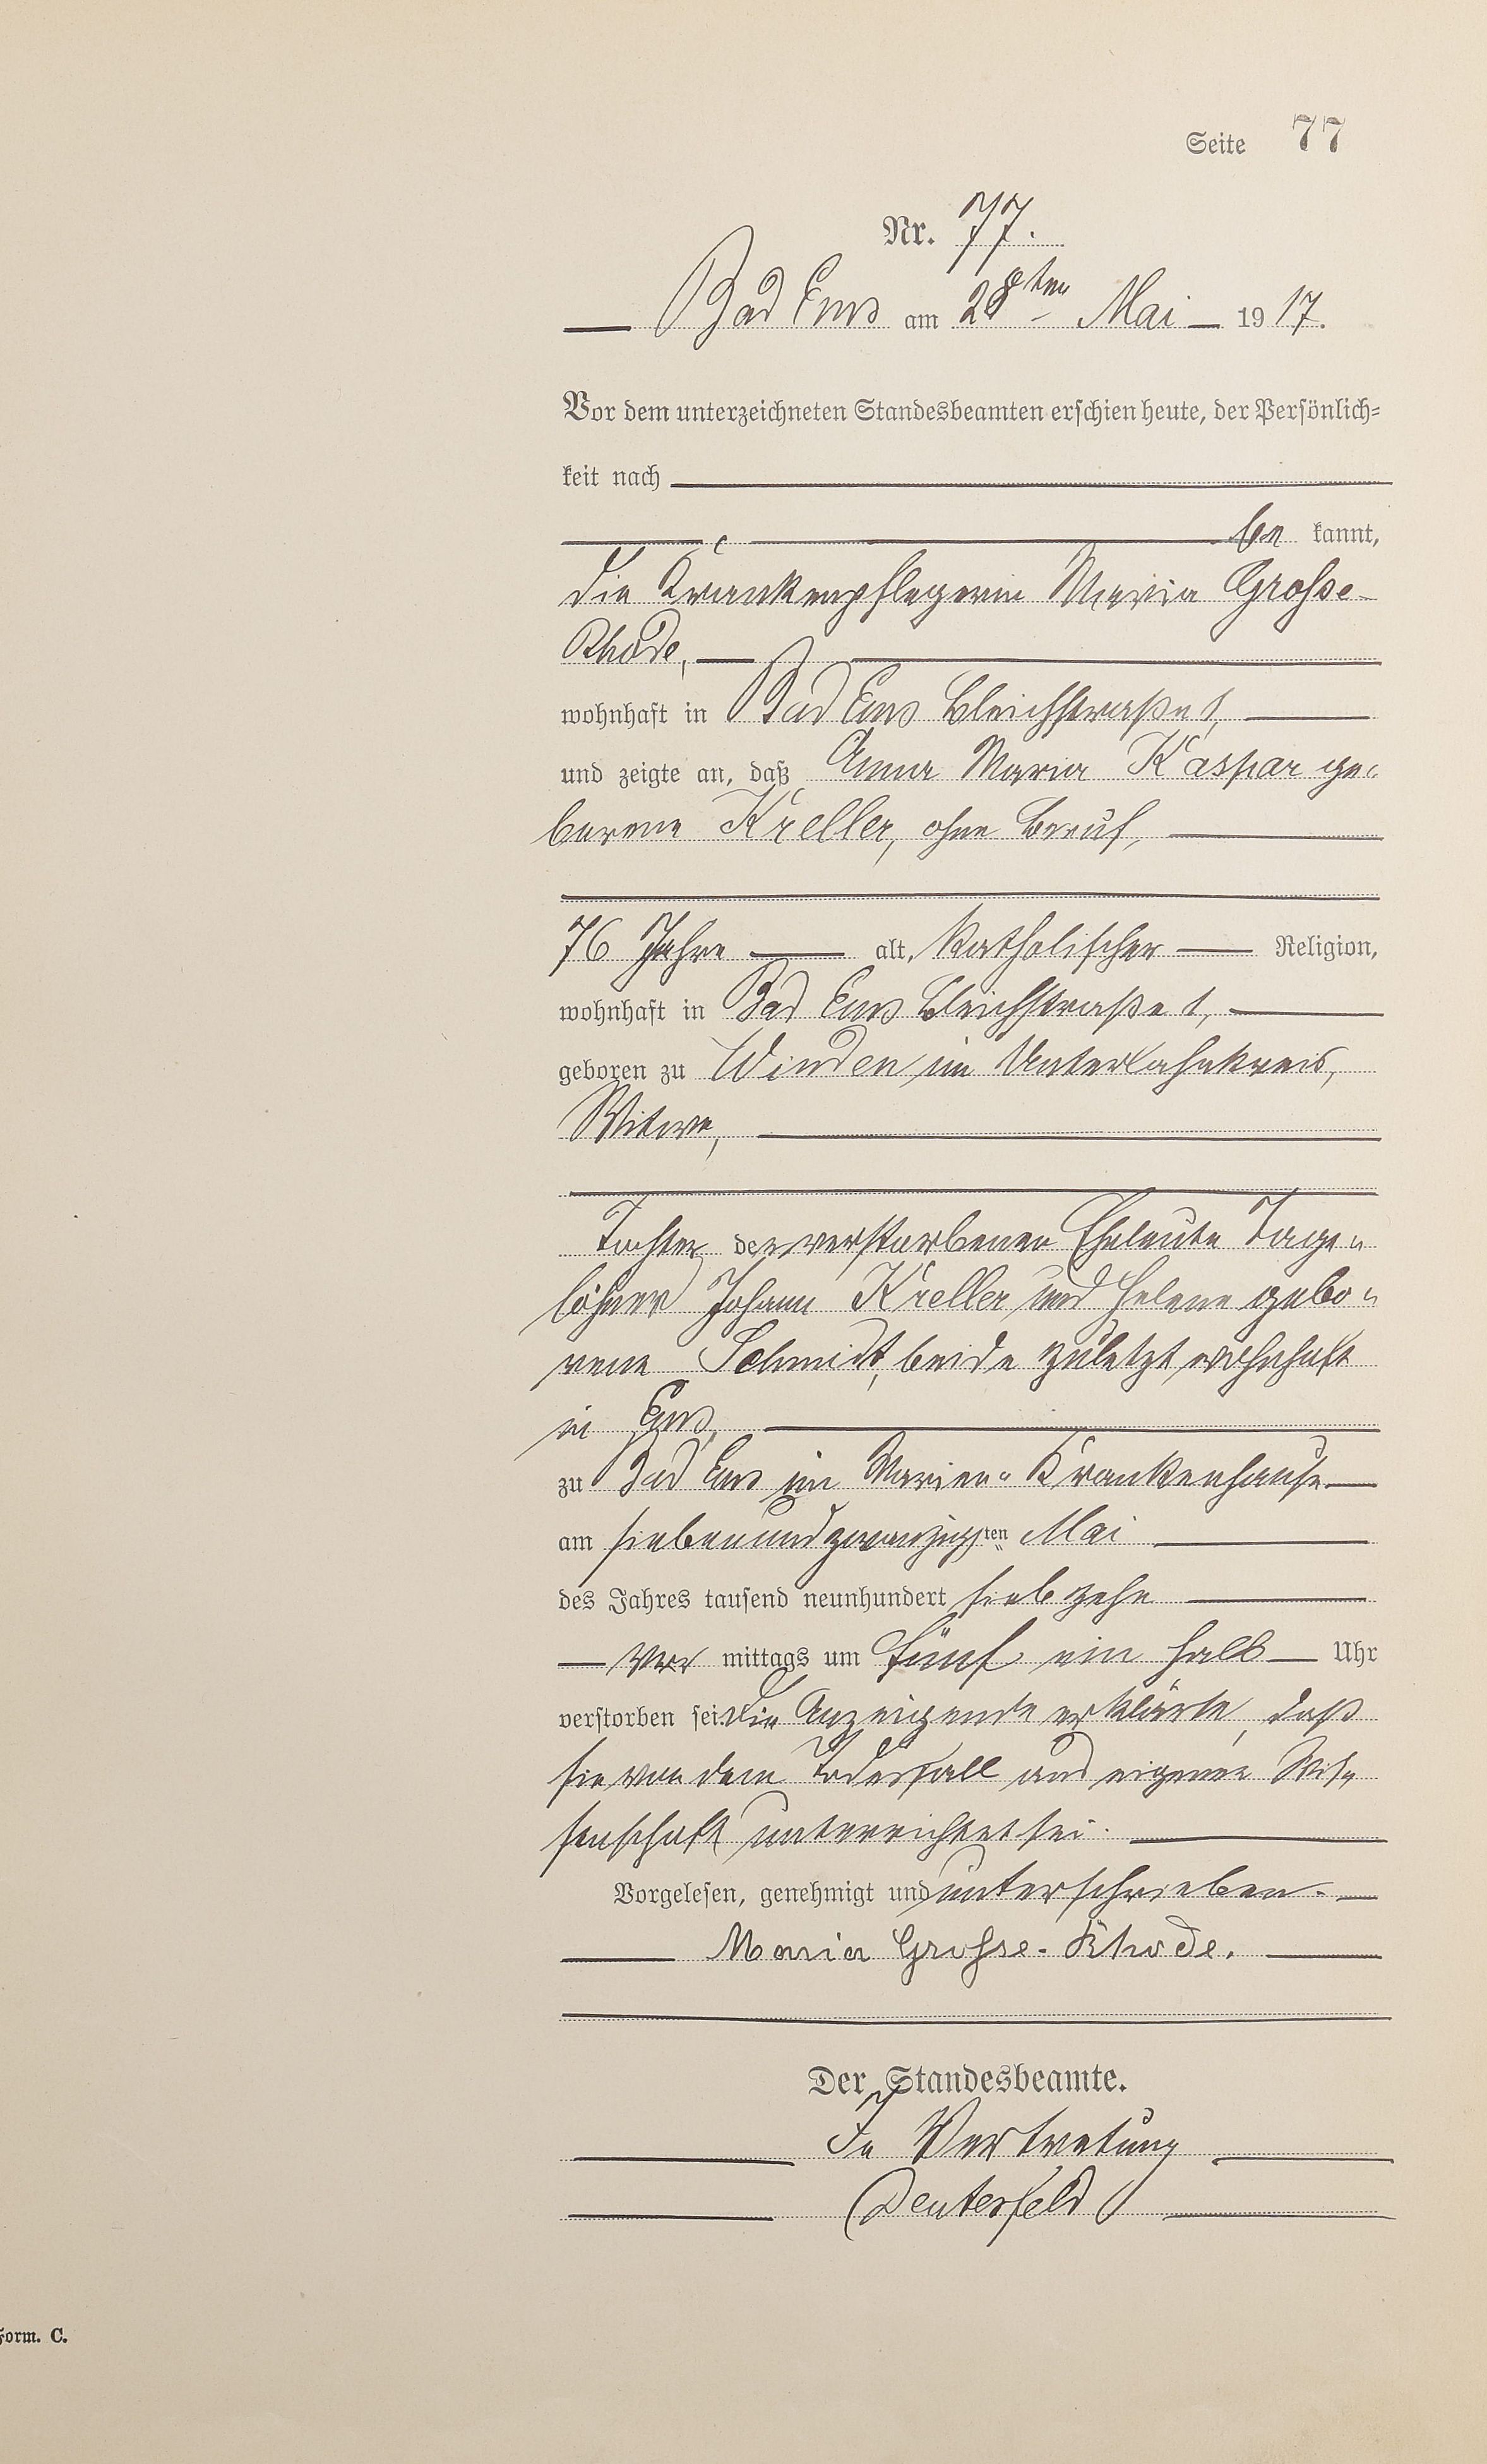 Seite 77
Nr. 77.
Bad Ems am 28ten Mai 1917.
Vor dem unterzeichneten Standesbeamten erschien heute, der Persönlich-
keit nach
be kannt,
die Krankenpflegerin Maria Grosse-
Rhode,
wohnhaft in Bad Ems Bleichstraße 1,
und zeigte an, daß Anna Maria Kaspar ge-
borene Kreller, ohne Beruf,
76 Jahre alt, katholischer Religion,
wohnhaft in Bad Ems Bleichstraße 1,
geboren zu Winden im Unterlahnkreis,
Witwe,
Tochter der verstorbenen Eheleute Tage-
löhner Johann Kreller und Helene gebo-
rene Schmidt, beide zuletzt wohnhaft
in Ems,
zu Bad Ems im Marien-Krankenhause
am siebenundzwanzigsten Mai
des Jahres tausend neunhundert siebzehn
vor mittags um fünf ein halb Uhr
verstorben sei. Die Anzeigende erklärte, daß
sie von dem Todesfall aus eigener Wis-
senschaft unterrichtet sei.
Vorgelesen, genehmigt und unterschrieben.
Maria Grosse-Rhode.
Der Standesbeamte.
In Vertretung
Deuterfeld
Form. C.